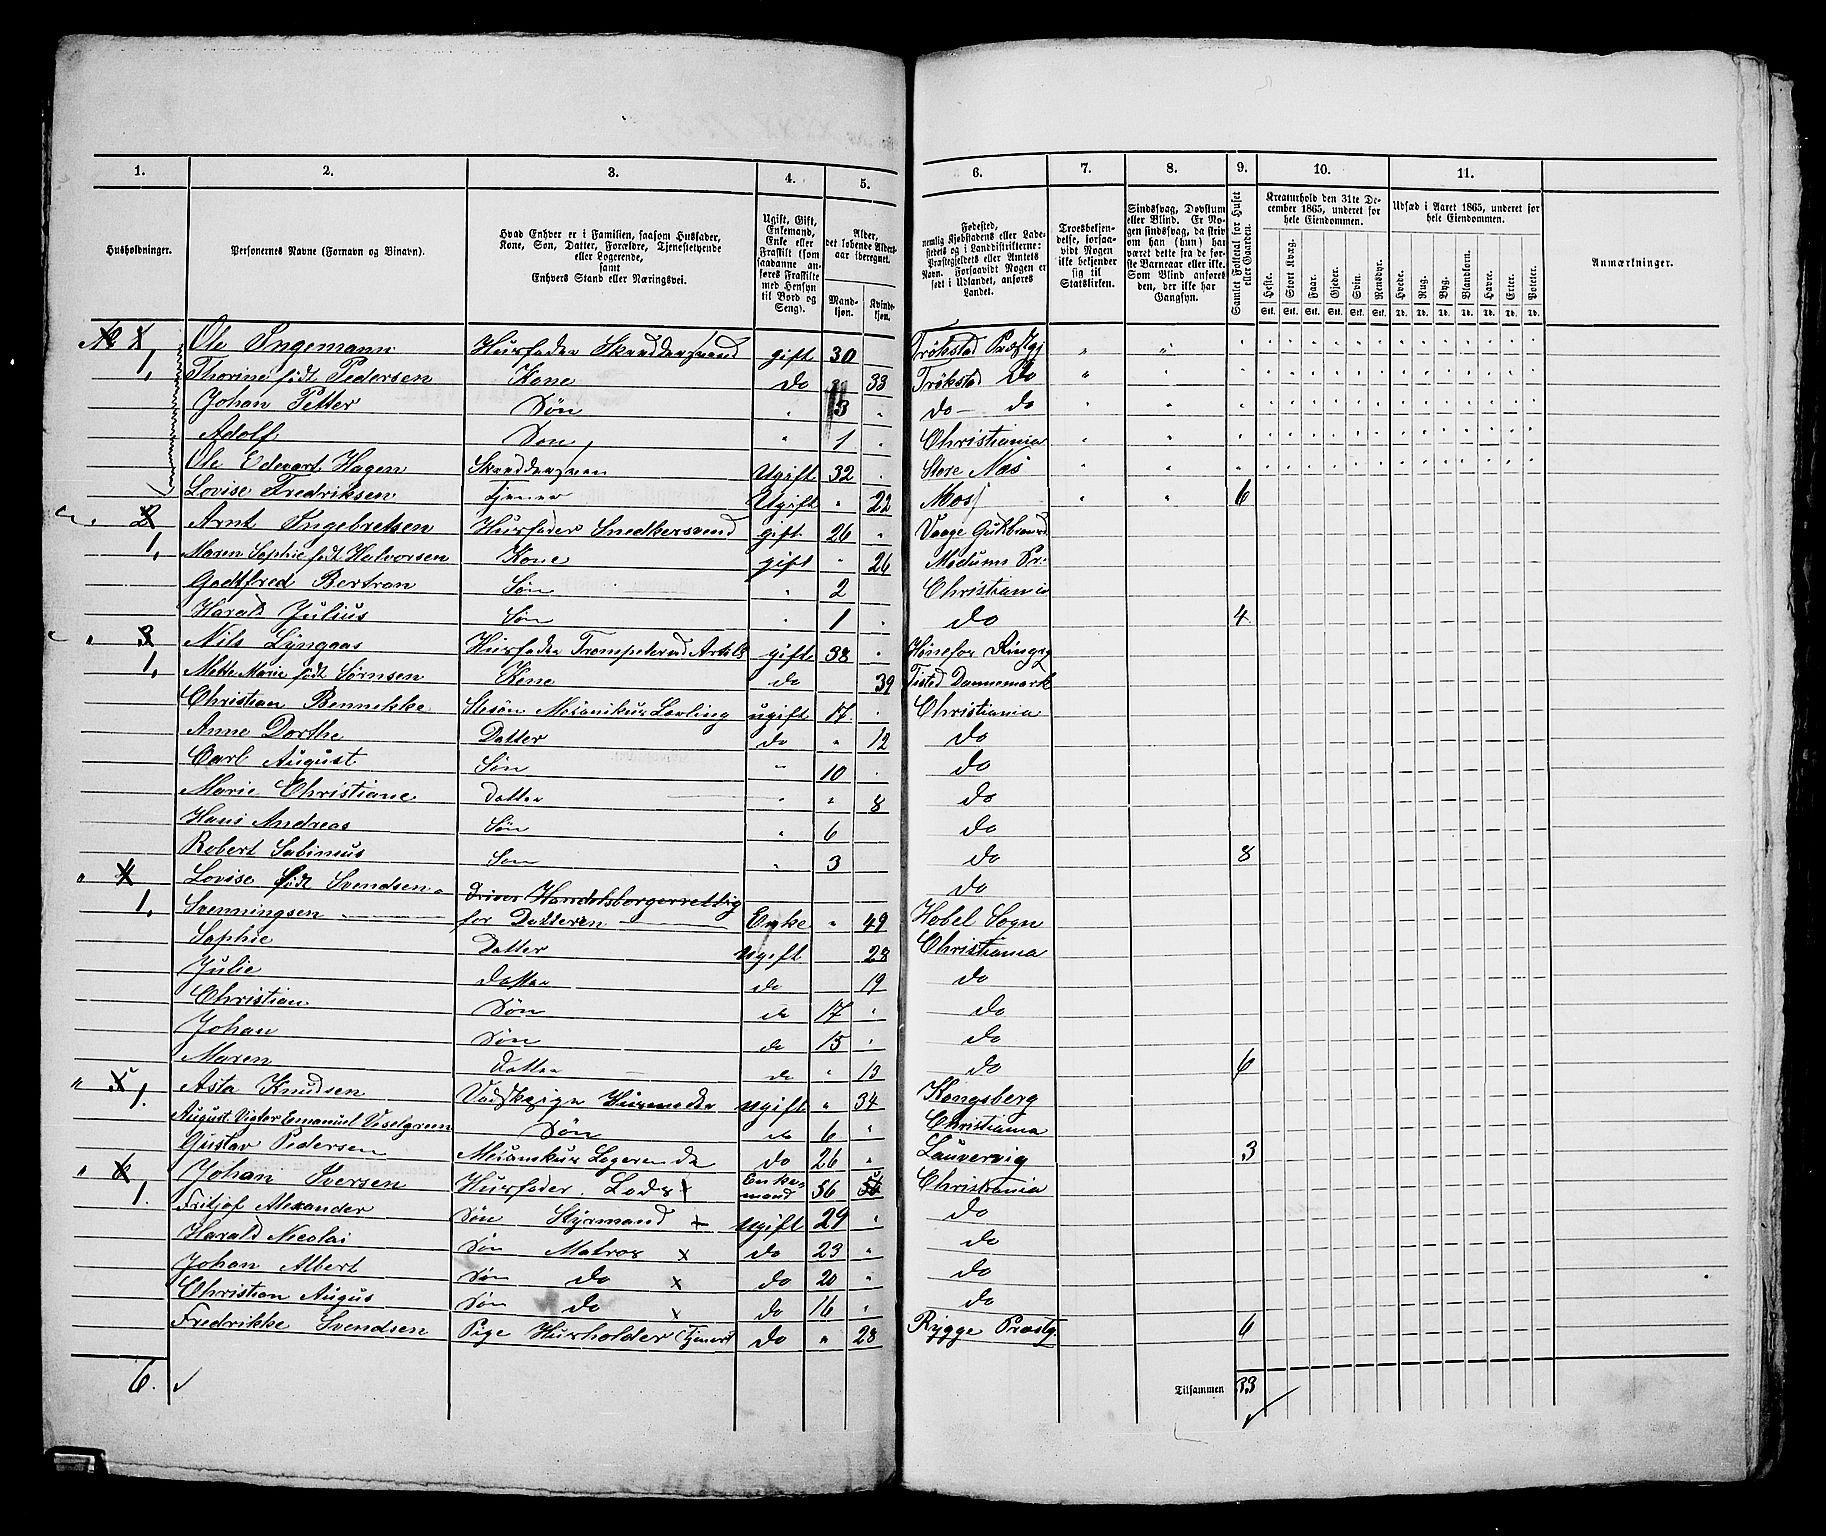 1. 2. 3. 4. 5. 6. 7. 8. 9. 10. 11.
Husholdninger.
Personernes Navne (Fornavn og Binavn).
Hvad Enhver er i Familien, saasom Husfader, Kone, Søn, Datter, Forældre, Tjenestetyende eller Logerende, samt Enhvers Stand eller Næringsvei.
Ugift, Gift, Enkemand, Enke eller Fraskilt (som saadanne anføres Fraskilte med Hensyn til Bord og Seng).
Alder, det løbende Aldersaar iberegnet.
Mandkjøn. Kvindekjøn.
Fødested, nemlig Kjøbstadens eller Ladestedets og i Landdistrikterne: Præstegjeldets eller Amtets Navn. Forsaavidt Nogen er født i Udlandet, anføres Landet.
Troesbekjendelse, forsaavidt Nogen ikke bekjender sig til Statskirken.
Sindssvag, Døvstum eller Blind. Er Nogen sindssvag, da skrives om han (hun) har været dette fra de første Barneaar eller ikke. Som Blind anføres den, der ikke har Gangsyn.
Samlet Folketal for Huset eller Gaarden.
Kreaturhold den 31te December 1865, underet for hele Eiendommen.
Heste. Stort Kvæg. Faar. Gjeder. Svin. Rensdyr.
Stk. Stk. Stk. Stk. Stk. Stk.
Udsæd i Aaret 1865, underet for hele Eiendommen.
Hvede. Rug. Byg. Blandkorn. Havre. Erter. Poteter.
Td. Td. Td. Td. Td. Td. Td.
Anmærkninger.
1 Ole Ingemann Husfader Skræddersvend gift 30 Trökstad Præstgj
1, Thorine født Pedersen Kone do 33 Trökstad Do
Johan Petter Søn 3 do - do
Adolf Søn 1 Christiania
Ole Edevart Hagen Skræddersven Ugift 32 Store Næs
Lovise Fredriksen Tjener Ugift 22 Moss 6
2 Arnt Ingebretsen Husfader Snedkersvend gift 26 Vaage Gulbrands
1, Maren Sophie født Halvorsen Kone gift 26 Modums Pr.
Godtfred Bertran Søn 2 Christiania
Harald Julius Søn 1 do 4
3 Nils Lyngaas Husfader Trompeter ved Artill gift 38 Hönefos Ringrg
1, Mette Marie født Sørnsen Kone do 39 Tisted Dannemark
Christian Bennekke Stesön Mekanikus Lærling ugift 17 Christiania
Anne Dorthe Datter do 12 do
Carl August Søn 10 do
Marie Christiane Datter 8 do
Hans Andreas Søn 6 do
Robert Sabinius Søn 3 do 8
4 Lovise født Svendsen Driver Handelsborgerrettig do
1, Svenningsen for Datteren Enke 49 Hobel Sogn
Sophie Datter ugift 28 Christiania
Julie Datter do 19 do
Christian Søn do 17 do
Johan Søn do 15 do
Maren Datter do 13 do 6
5 Asta Knudsen Vadskepige Husmoder ugift 34 Kongsberg
1. August Vigter Emanuel Veselgreen Søn do 6 Christiania
Gustav Pedersen Mekanikus Logerende do 26 Laurvig 3
6 Johan Iversen Husfader. Lods x Enkemand 56 Christiania
1. Fritjof Alexander Søn Styrmand x ugift 29 do
Harald Nicolai Søn Matros x do 23 do
Johan Albert Søn do x do 20 do
Christian Augus Søn do x do 16 do
Fredrikke Svendsen Pige Husholder Tjener do 28 Rygge Præstg. 6
6. Tilsammen 33